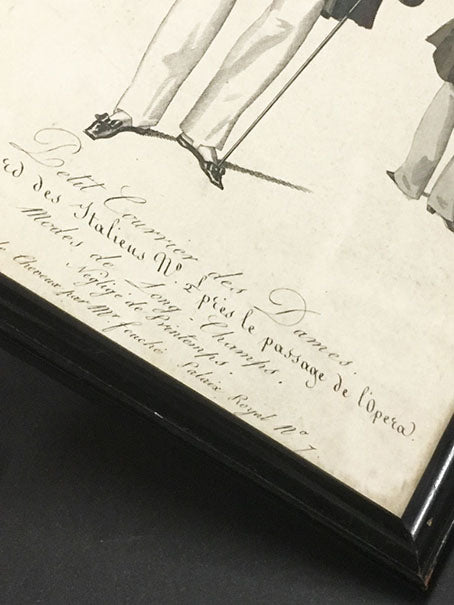 Petit Courrier des Dames.
rd des Italiens N°. 2 près le passage de l'Opera.
Modes de Long-Champs.
Négligé de Printemps.
Cheveux par Mr. Palais Royal N° 7.